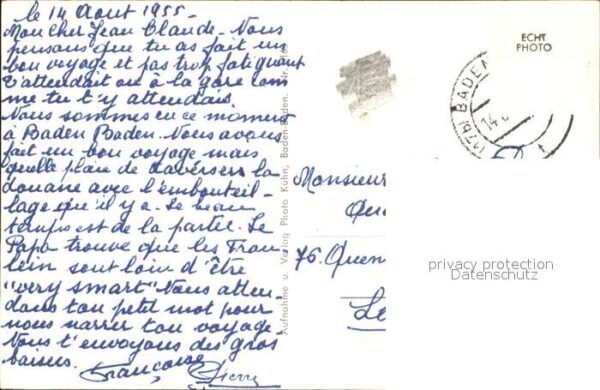 le 14 Aout 1955 -
Mon cher Jean Claude - Nous
pensons que tu as fait un
bon voyage et pas trop fatiguant
t'attendait ou à la gare com
me tu t'y attendais.
Nous sommes en ce moment
à Baden Baden. Nous avons
fait un bon voyage mais
quelle plain de traverser la
douane avec l'embouteil-
lage qu'il y a. Le beau
temps est de la partie. Le
Papa trouve que les
sont loin d'être
"very smart" Nous atten-
dans ton petit mot pour
nous narrer ton voyage.
Nous t'envoyons des gros
baisers.
Francoise Pierre
Aufnahme u. Verlag Photo Kühn, Baden-Baden.
ECHT
PHOTO
(17b) BADEN
14.
Monsieur
76. Quen
privacy protection
Datenschutz